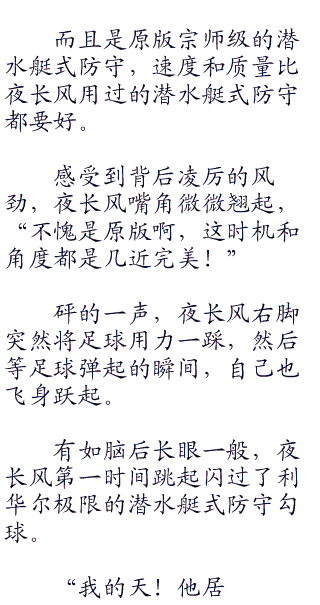 而且是原版宗师级的潜
水艇式防守，速度和质量比
夜长风用过的潜水艇式防守
都要好。
感受到背后凌厉的风
劲，夜长风嘴角微微翘起，
“不愧是原版啊，这时机和
角度都是几近完美！”
砰的一声，夜长风右脚
突然将足球用力一踩，然后
等足球弹起的瞬间，自己也
飞身跃起。
有如脑后长眼一般，夜
长风第一时间跳起闪过了利
华尔极限的潜水艇式防守勾
球。
“我的天！他居